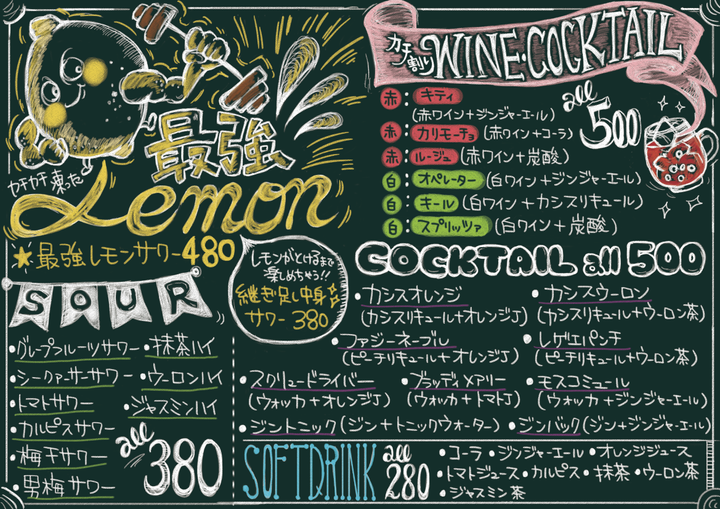 カチカチ凍った
最強
Lemon
★最強レモンサワー480
レモンがとけるまで
楽しめちゃう!!
継ぎ足し中身
サワー 380
SOUR
・グレープフルーツサワー
・シークァーサーサワー
・トマトサワー
・カルピスサワー
・梅干サワー
・男梅サワー
・抹茶ハイ
・ウーロンハイ
・ジャスミンハイ
all 380
カチ割り WINE・COCKTAIL
all 500
赤:キティ
(赤ワイン+ジンジャーエール)
赤:カリモーチョ(赤ワイン+コーラ)
赤:ルージュ(赤ワイン+炭酸)
白:オペレーター(白ワイン+ジンジャーエール)
白:キール(白ワイン+カシスリキュール)
白:スプリッツァ(白ワイン+炭酸)
COCKTAIL all 500
・カシスオレンジ
(カシスリキュール+オレンジJ)
・カシスウーロン
(カシスリキュール+ウーロン茶)
・ファジーネーブル
(ピーチリキュール+オレンジJ)
・レゲエパンチ
(ピーチリキュール+ウーロン茶)
・スクリュードライバー
(ウォッカ+オレンジJ)
・ブラッディメアリー
(ウォッカ+トマトJ)
・モスコミュール
(ウォッカ+ジンジャーエール)
・ジントニック(ジン+トニックウォーター)
・ジンバック(ジン+ジンジャーエール)
SOFTDRINK all 280
・コーラ・ジンジャーエール・オレンジジュース
・トマトジュース・カルピス・抹茶・ウーロン茶
・ジャスミン茶